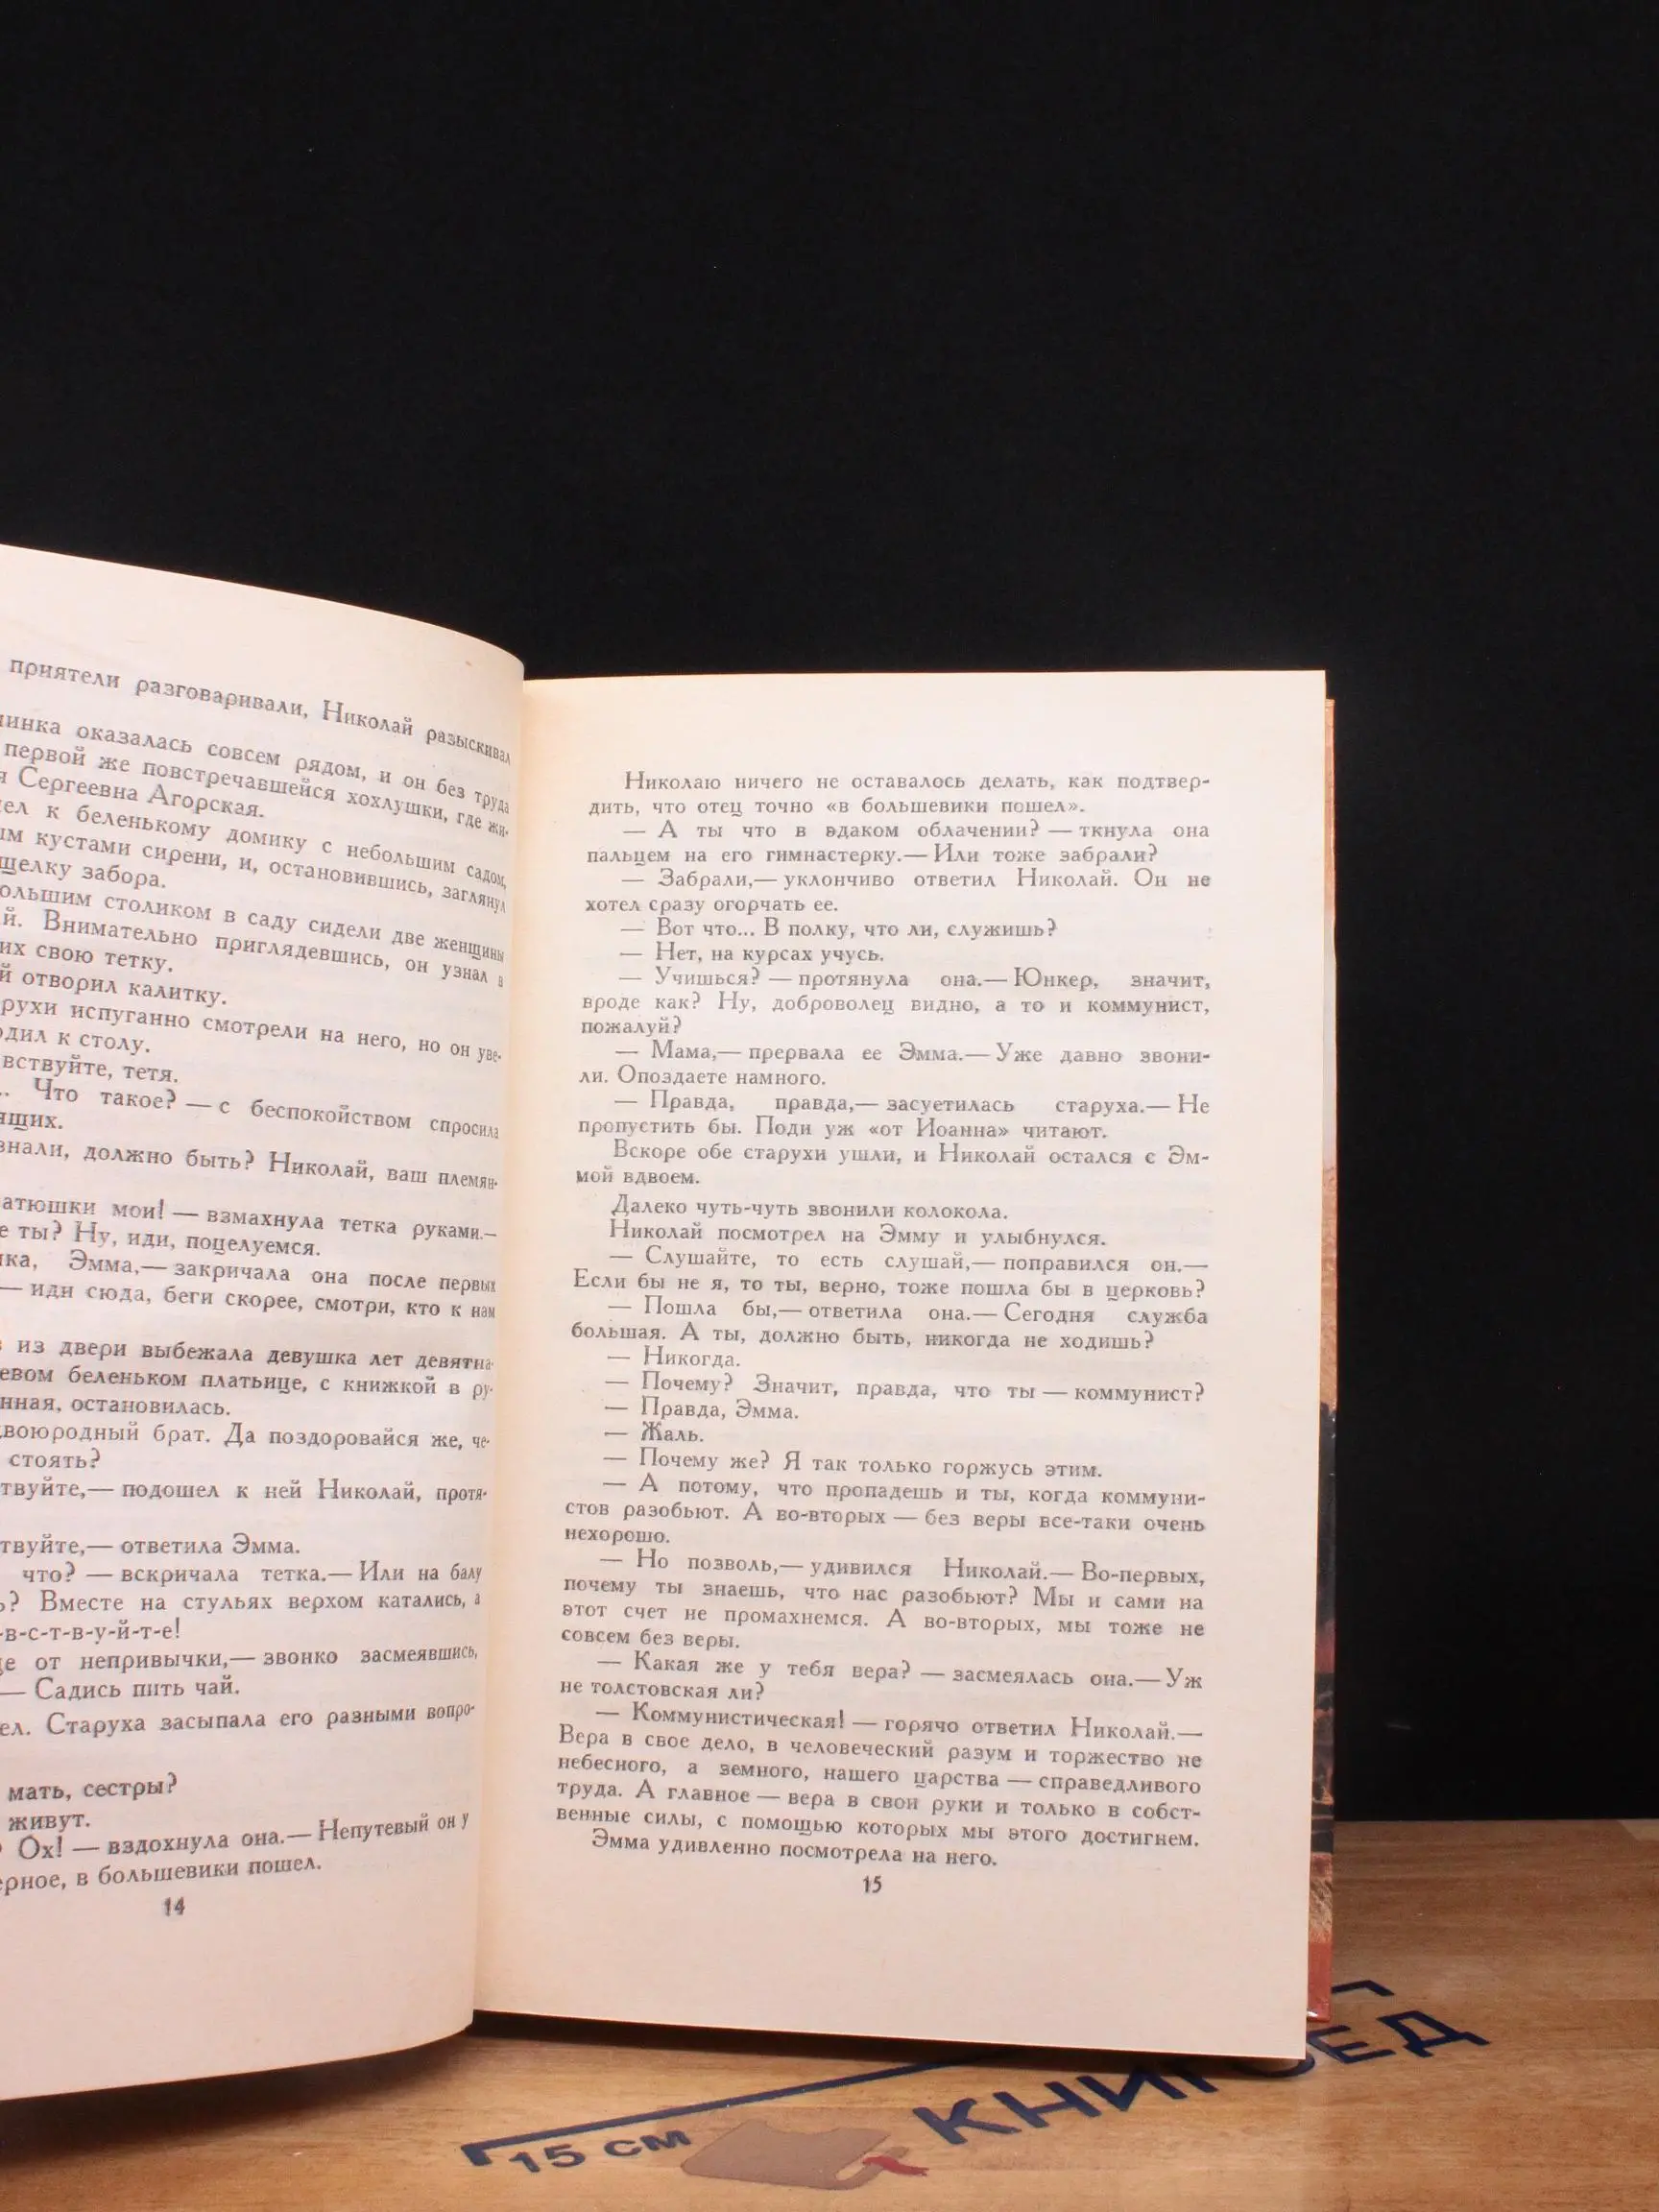 приятели разговаривали, Николай разыскивал
оказалась совсем рядом, и он без труда
первой же повстречавшейся хохлушки, где жи-
Сергеевна Агорская.
к беленькому домику с небольшим садом,
кустами сирени, и, остановившись, заглянул
щелку забора.
столиком в саду сидели две женщины
Внимательно приглядевшись, он узнал в
них свою тетку.
отворил калитку.
испуганно смотрели на него, но он уве-
к столу.
тетя.
Что такое? — с беспокойством спросила
должно быть? Николай, ваш племян-
мои! — взмахнула тетка руками.—
ты? Ну, иди, поцелуемся.
Эмма,— закричала она после первых
— иди сюда, беги скорее, смотри, кто к нам
из двери выбежала девушка лет девятна-
беленьком платьице, с книжкой в ру-
остановилась.
брат. Да поздоровайся же, че-
стоять?
подошел к ней Николай, протя-
ответила Эмма.
что? — вскричала тетка.— Или на балу
Вместе на стульях верхом катались, а
-в-с-т-в-у-й-т-е!
от непривычки,— звонко засмеявшись,
— Садись пить чай.
Старуха засыпала его разными вопро-
мать, сестры?
живут.
Ох! — вздохнула она.— Непутевый он у
в большевики пошел.
14
Николаю ничего не оставалось делать, как подтвер-
дить, что отец точно «в большевики пошел».
— А ты что в эдаком облачении? — ткнула она
пальцем на его гимнастерку.— Или тоже забрали?
— Забрали,— уклончиво ответил Николай. Он не
хотел сразу огорчать ее.
— Вот что... В полку, что ли, служишь?
— Нет, на курсах учусь.
— Учишься? — протянула она.— Юнкер, значит,
вроде как? Ну, доброволец видно, а то и коммунист,
пожалуй?
— Мама,— прервала ее Эмма.— Уже давно звони-
ли. Опоздаете намного.
— Правда, правда,— засуетилась старуха.— Не
пропустить бы. Поди уж «от Иоанна» читают.
Вскоре обе старухи ушли, и Николай остался с Эм-
мой вдвоем.
Далеко чуть-чуть звонили колокола.
Николай посмотрел на Эмму и улыбнулся.
— Слушайте, то есть слушай,— поправился он.—
Если бы не я, то ты, верно, тоже пошла бы в церковь?
— Пошла бы,— ответила она.— Сегодня служба
большая. А ты, должно быть, никогда не ходишь?
— Никогда.
— Почему? Значит, правда, что ты — коммунист?
— Правда, Эмма.
— Жаль.
— Почему же? Я так только горжусь этим.
— А потому, что пропадешь и ты, когда коммуни-
стов разобьют. А во-вторых — без веры все-таки очень
нехорошо.
— Но позволь,— удивился Николай.— Во-первых,
почему ты знаешь, что нас разобьют? Мы и сами на
этот счет не промахнемся. А во-вторых, мы тоже не
совсем без веры.
— Какая же у тебя вера? — засмеялась она.— Уж
не толстовская ли?
— Коммунистическая! — горячо ответил Николай.—
Вера в свое дело, в человеческий разум и торжество не
небесного, а земного, нашего царства — справедливого
труда. А главное — вера в свои руки и только в собст-
венные силы, с помощью которых мы этого достигнем.
Эмма удивленно посмотрела на него.
15
15 СМ